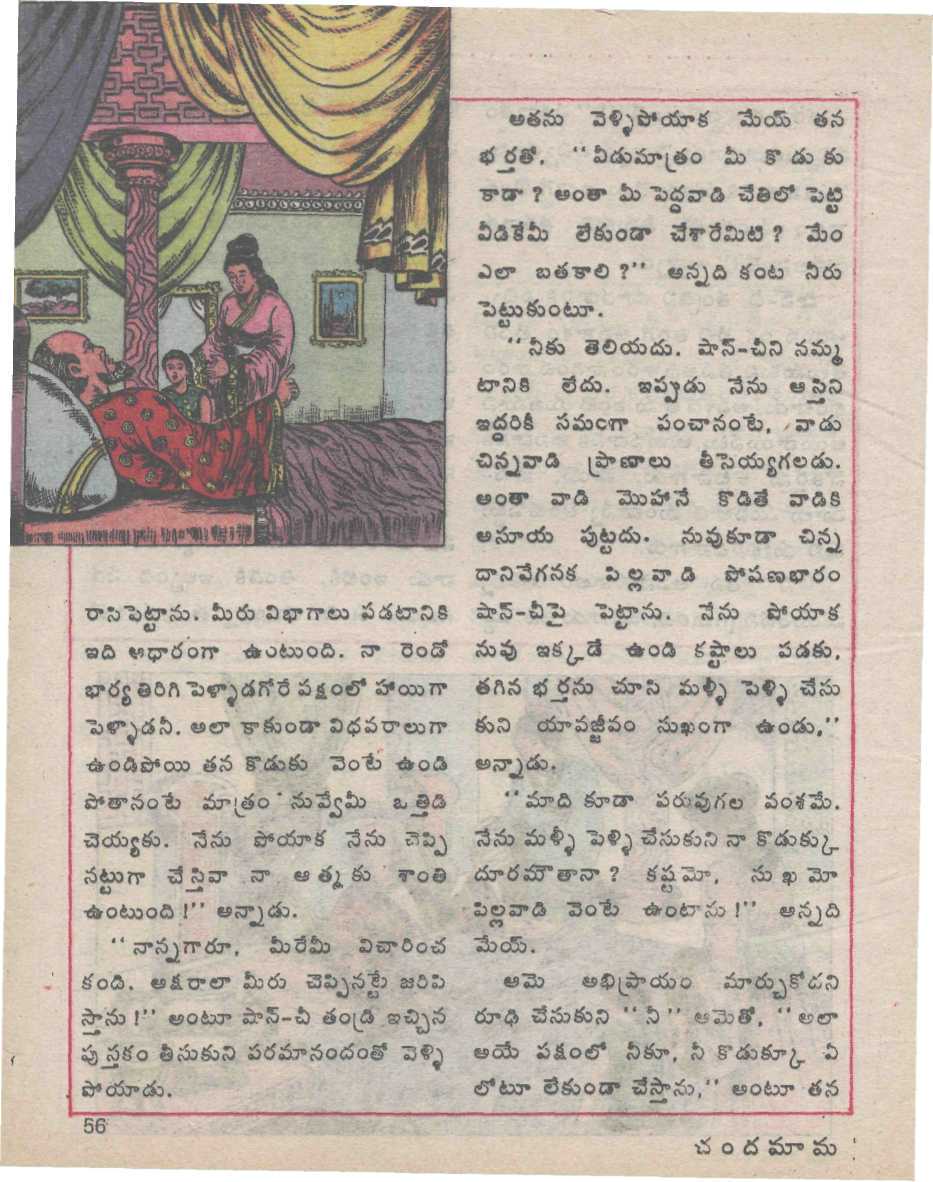 రాసిపెట్టాను. మీరు విభాగాలు పడటానికి
ఇది ఆధారంగా ఉంటుంది. నా రెండో
భార్య తిరిగి పెళ్ళాడగోరే పక్షంలో హాయిగా
పెళ్ళాడనీ. అలా కాకుండా విధవరాలుగా
ఉండిపోయి తన కొడుకు వెంటే ఉండి
పోతానంటే మాత్రం నువ్వేమీ ఒత్తిడి
చెయ్యకు. నేను పోయాక నేను చెప్పి
నట్టుగా చేస్తివా నా ఆత్మకు శాంతి
ఉంటుంది!'' అన్నాడు.
''నాన్నగారూ, మీరేమీ విచారించ
కండి. అక్షరాలా మీరు చెప్పినట్టే జరిపి
స్తాను!'' అంటూ షాన్-చీ తండ్రి ఇచ్చిన
పుస్తకం తీసుకుని పరమానందంతో వెళ్ళి
పోయాడు.
అతను వెళ్ళిపోయాక మేయ్ తన
భర్తతో, ''వీడుమాత్రం మీ కొడుకు
కాడా? అంతా మీ పెద్దవాడి చేతిలో పెట్టి
వీడికేమీ లేకుండా చేశారేమిటి? మేం
ఎలా బతకాలి?'' అన్నది కంట నీరు
పెట్టుకుంటూ.
''నీకు తెలియదు. షాన్-చీని నమ్మ
టానికి లేదు. ఇప్పుడు నేను ఆస్తిని
ఇద్దరికీ సమంగా పంచానంటే, వాడు
చిన్నవాడి ప్రాణాలు తీసెయ్యగలడు.
అంతా వాడి మొహానే కొడితే వాడికి
అసూయ పుట్టదు. నువుకూడా చిన్న
దానివేగనక పిల్లవాడి పోషణభారం
షాన్-చీపై పెట్టాను. నేను పోయాక
నువు ఇక్కడే ఉండి కష్టాలు పడకు,
తగిన భర్తను చూసి మళ్ళీ పెళ్ళి చేసు
కుని యావజ్జీవం సుఖంగా ఉండు,''
అన్నాడు.
''మాది కూడా పరువుగల వంశమే.
నేను మళ్ళీ పెళ్ళి చేసుకుని నా కొడుక్కు
దూరమౌతానా? కష్టమో, సుఖమో
పిల్లవాడి వెంటే ఉంటాను!'' అన్నది
మేయ్.
ఆమె అభిప్రాయం మార్చుకోదని
రూఢి చేసుకుని ''నీ'' ఆమెతో, ''అలా
అయే పక్షంలో నీకూ, నీ కొడుక్కూ ఏ
లోటూ లేకుండా చేస్తాను,'' అంటూ తన
56
చందమామ